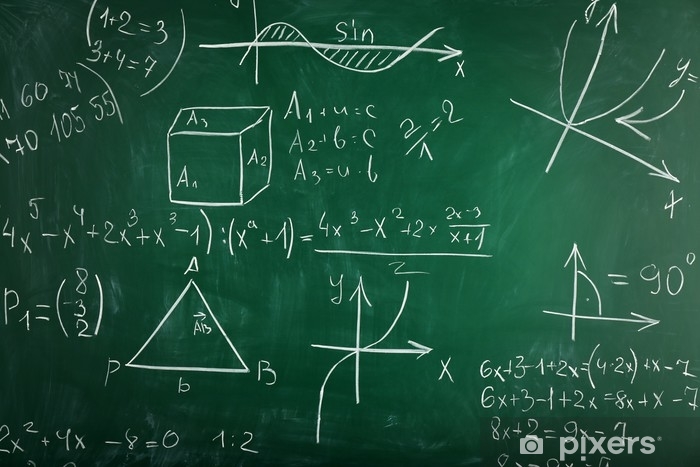 (1+2=3
3+4=7)
sin
x
y=
60 74
70 105 55
A3
A2
A1
A1+u=c
A2+b=c
A3=u·b
2/1=2
x
4x^5-x^4+2x^3+x^3-1):(x^a+1)=4x^3-x^2+2x 2x-3/x+1
P1=(8 -3 2)
A
AB
P
b
B
y
z
x
=90°
6x+3-1+2x=(4·2x)+x-7
6x+3-1+2x=8x+x-7
8x+2=9x-7
2x^2+4x-8=0 1:2
pixers